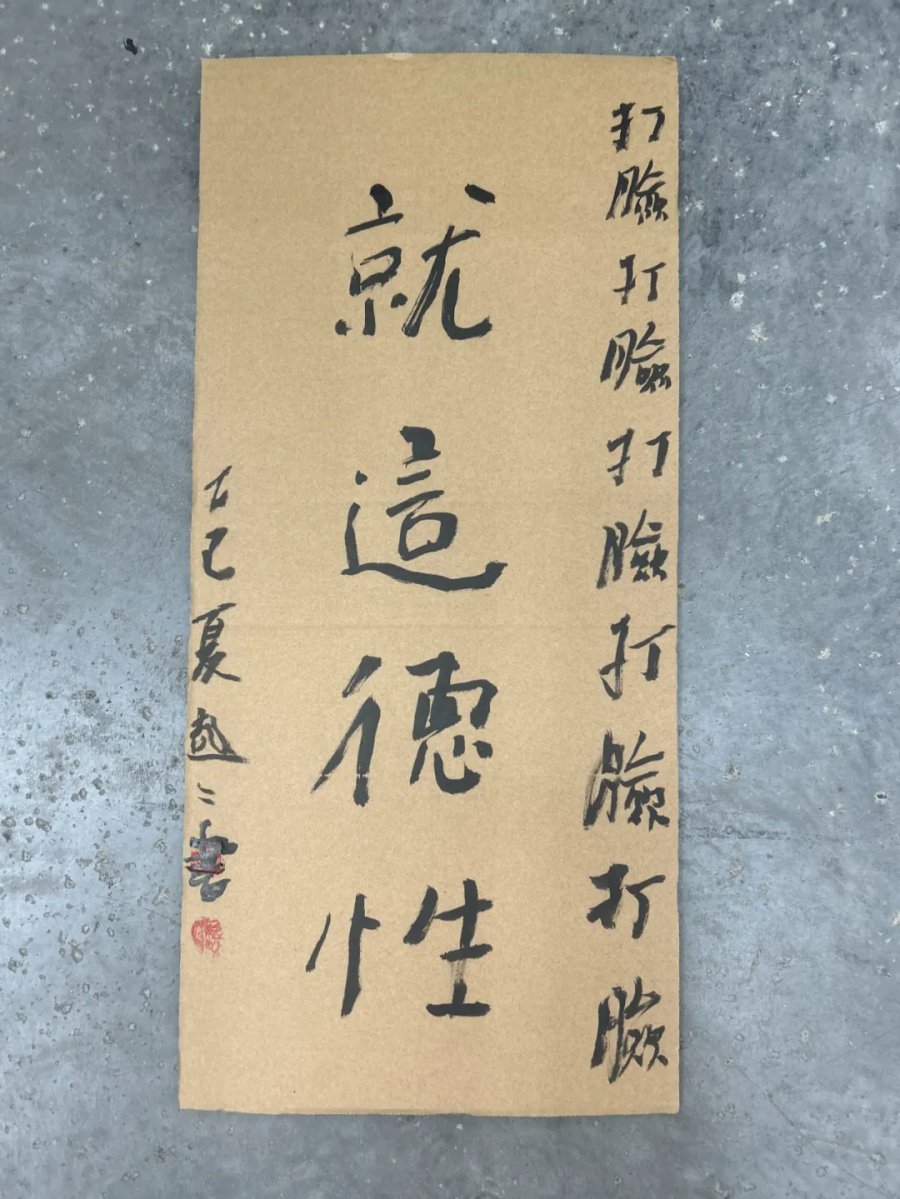 打臉打臉打臉打臉打臉
就這德性
巳夏書